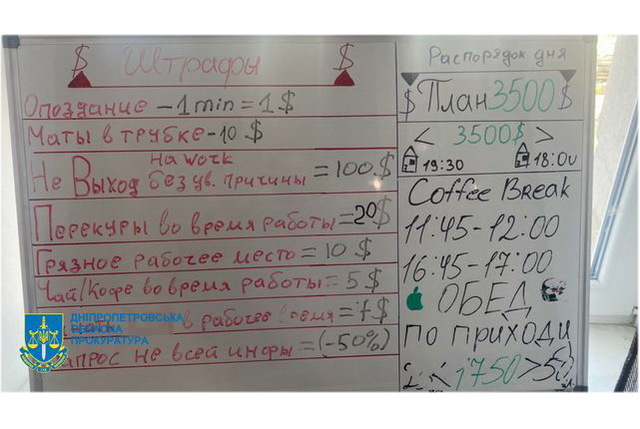 $ Штрафы $
Опоздание - 1 min = 1 $
Маты в трубке - 10 $
Не Выход на work без ув. причины = 100 $
Перекуры во время работы = 20 $
Грязное рабочее место = 10 $
Чай/Кофе во время работы = 5 $
в рабочее = $
не всей инфы = (-50%)
ДНІПРОПЕТРОВСЬКА
ОБЛАСНА
ПРОКУРАТУРА
Распорядок дня
$ План 3500 $
< 3500$ >
19:30 18:00
Coffee Break
11:45-12:00
16:45-17:00
ОБЕД
ПО ПРИХОДИ
1750 >